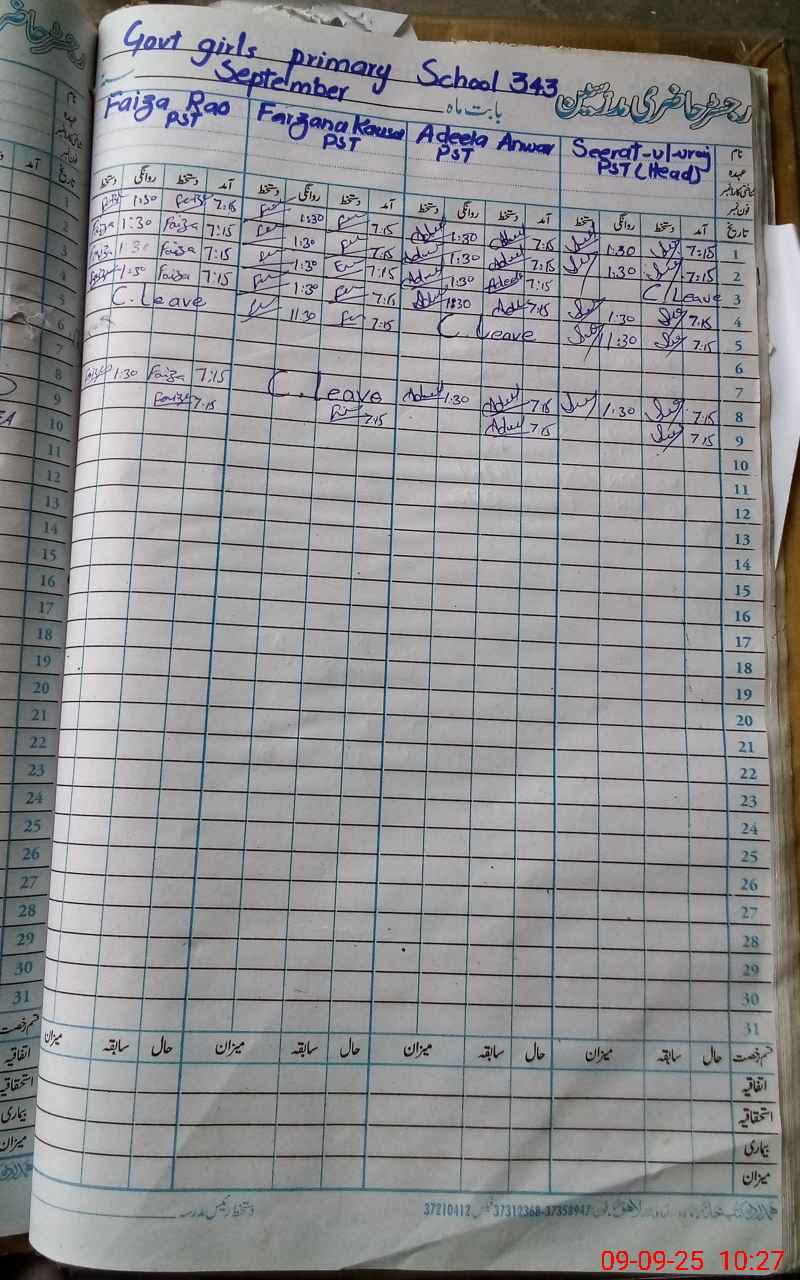 Govt girls primary School 343
رجسٹر حاضری مدرسین
September
بابت ماہ
Faiza Rao PST
Farzana Kausar PST
Adeela Anwar PST
Seerat-ul-uroj PST (Head)
نام
عہدہ
شناختی کارڈ نمبر
فون نمبر
دستخط روانگی دستخط آمد دستخط روانگی دستخط آمد دستخط روانگی دستخط آمد دستخط روانگی دستخط آمد تاریخ
1:30 7:15 1:30 7:15 1:30 7:15 1:30 7:15 1
Faiza 1:30 Faiza 7:15 1:30 7:15 1:30 7:15 1:30 7:15 2
Faiza 1:30 Faiza 7:15 1:30 7:15 1:30 Adeela 7:15 C/Leave 3
Faiza 1:30 Faiza 7:15 1:30 7:15 1:30 7:15 1:30 7:15 4
C. Leave 11:30 7:15 C. Leave 11:30 7:15 5
6
7
Faiza 1:30 Faiza 7:15 C. Leave 1:30 7:15 1:30 7:15 8
Faiza 7:15 7:15 7:15 7:15 9
10
11
12
13
14
15
16
17
18
19
20
21
22
23
24
25
26
27
28
29
30
31
میزان سابقہ حال میزان سابقہ حال میزان سابقہ حال میزان سابقہ حال قسم رخصت
اتفاقیہ
استحقاقیہ
بیماری
میزان
دستخط رئیس مدرسہ
37210412 فیکس 37312368-37358947
آمد
تاریخ
1
2
3
4
5
6
7
8
9
10
11
12
13
14
15
16
17
18
19
20
21
22
23
24
25
26
27
28
29
30
31
قسم رخصت
اتفاقیہ
استحقاقیہ
بیماری
میزان
09-09-25 10:27